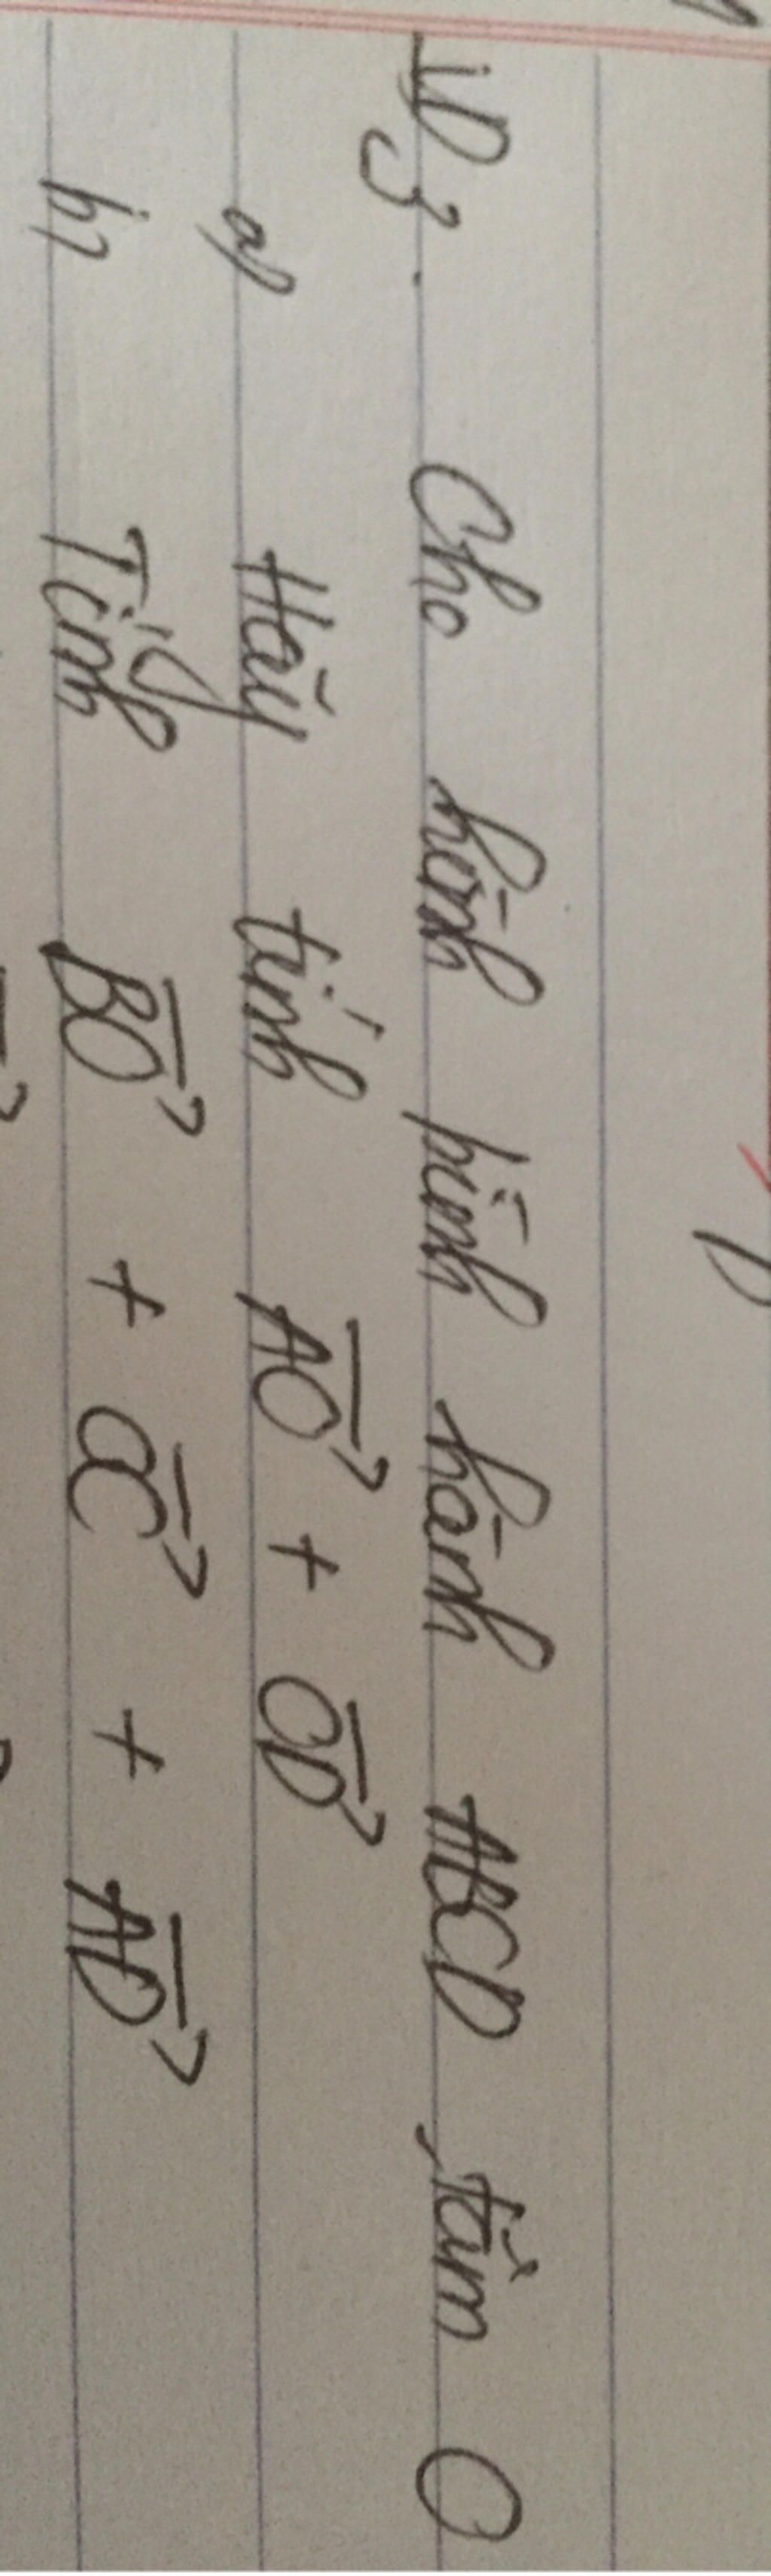 VD3. Cho hình bình hành ABCD, tâm O
a) Hãy tính $\overrightarrow{AO} + \overrightarrow{OD}$
b) Tính $\overrightarrow{BO} + \overrightarrow{OC} + \overrightarrow{AD}$